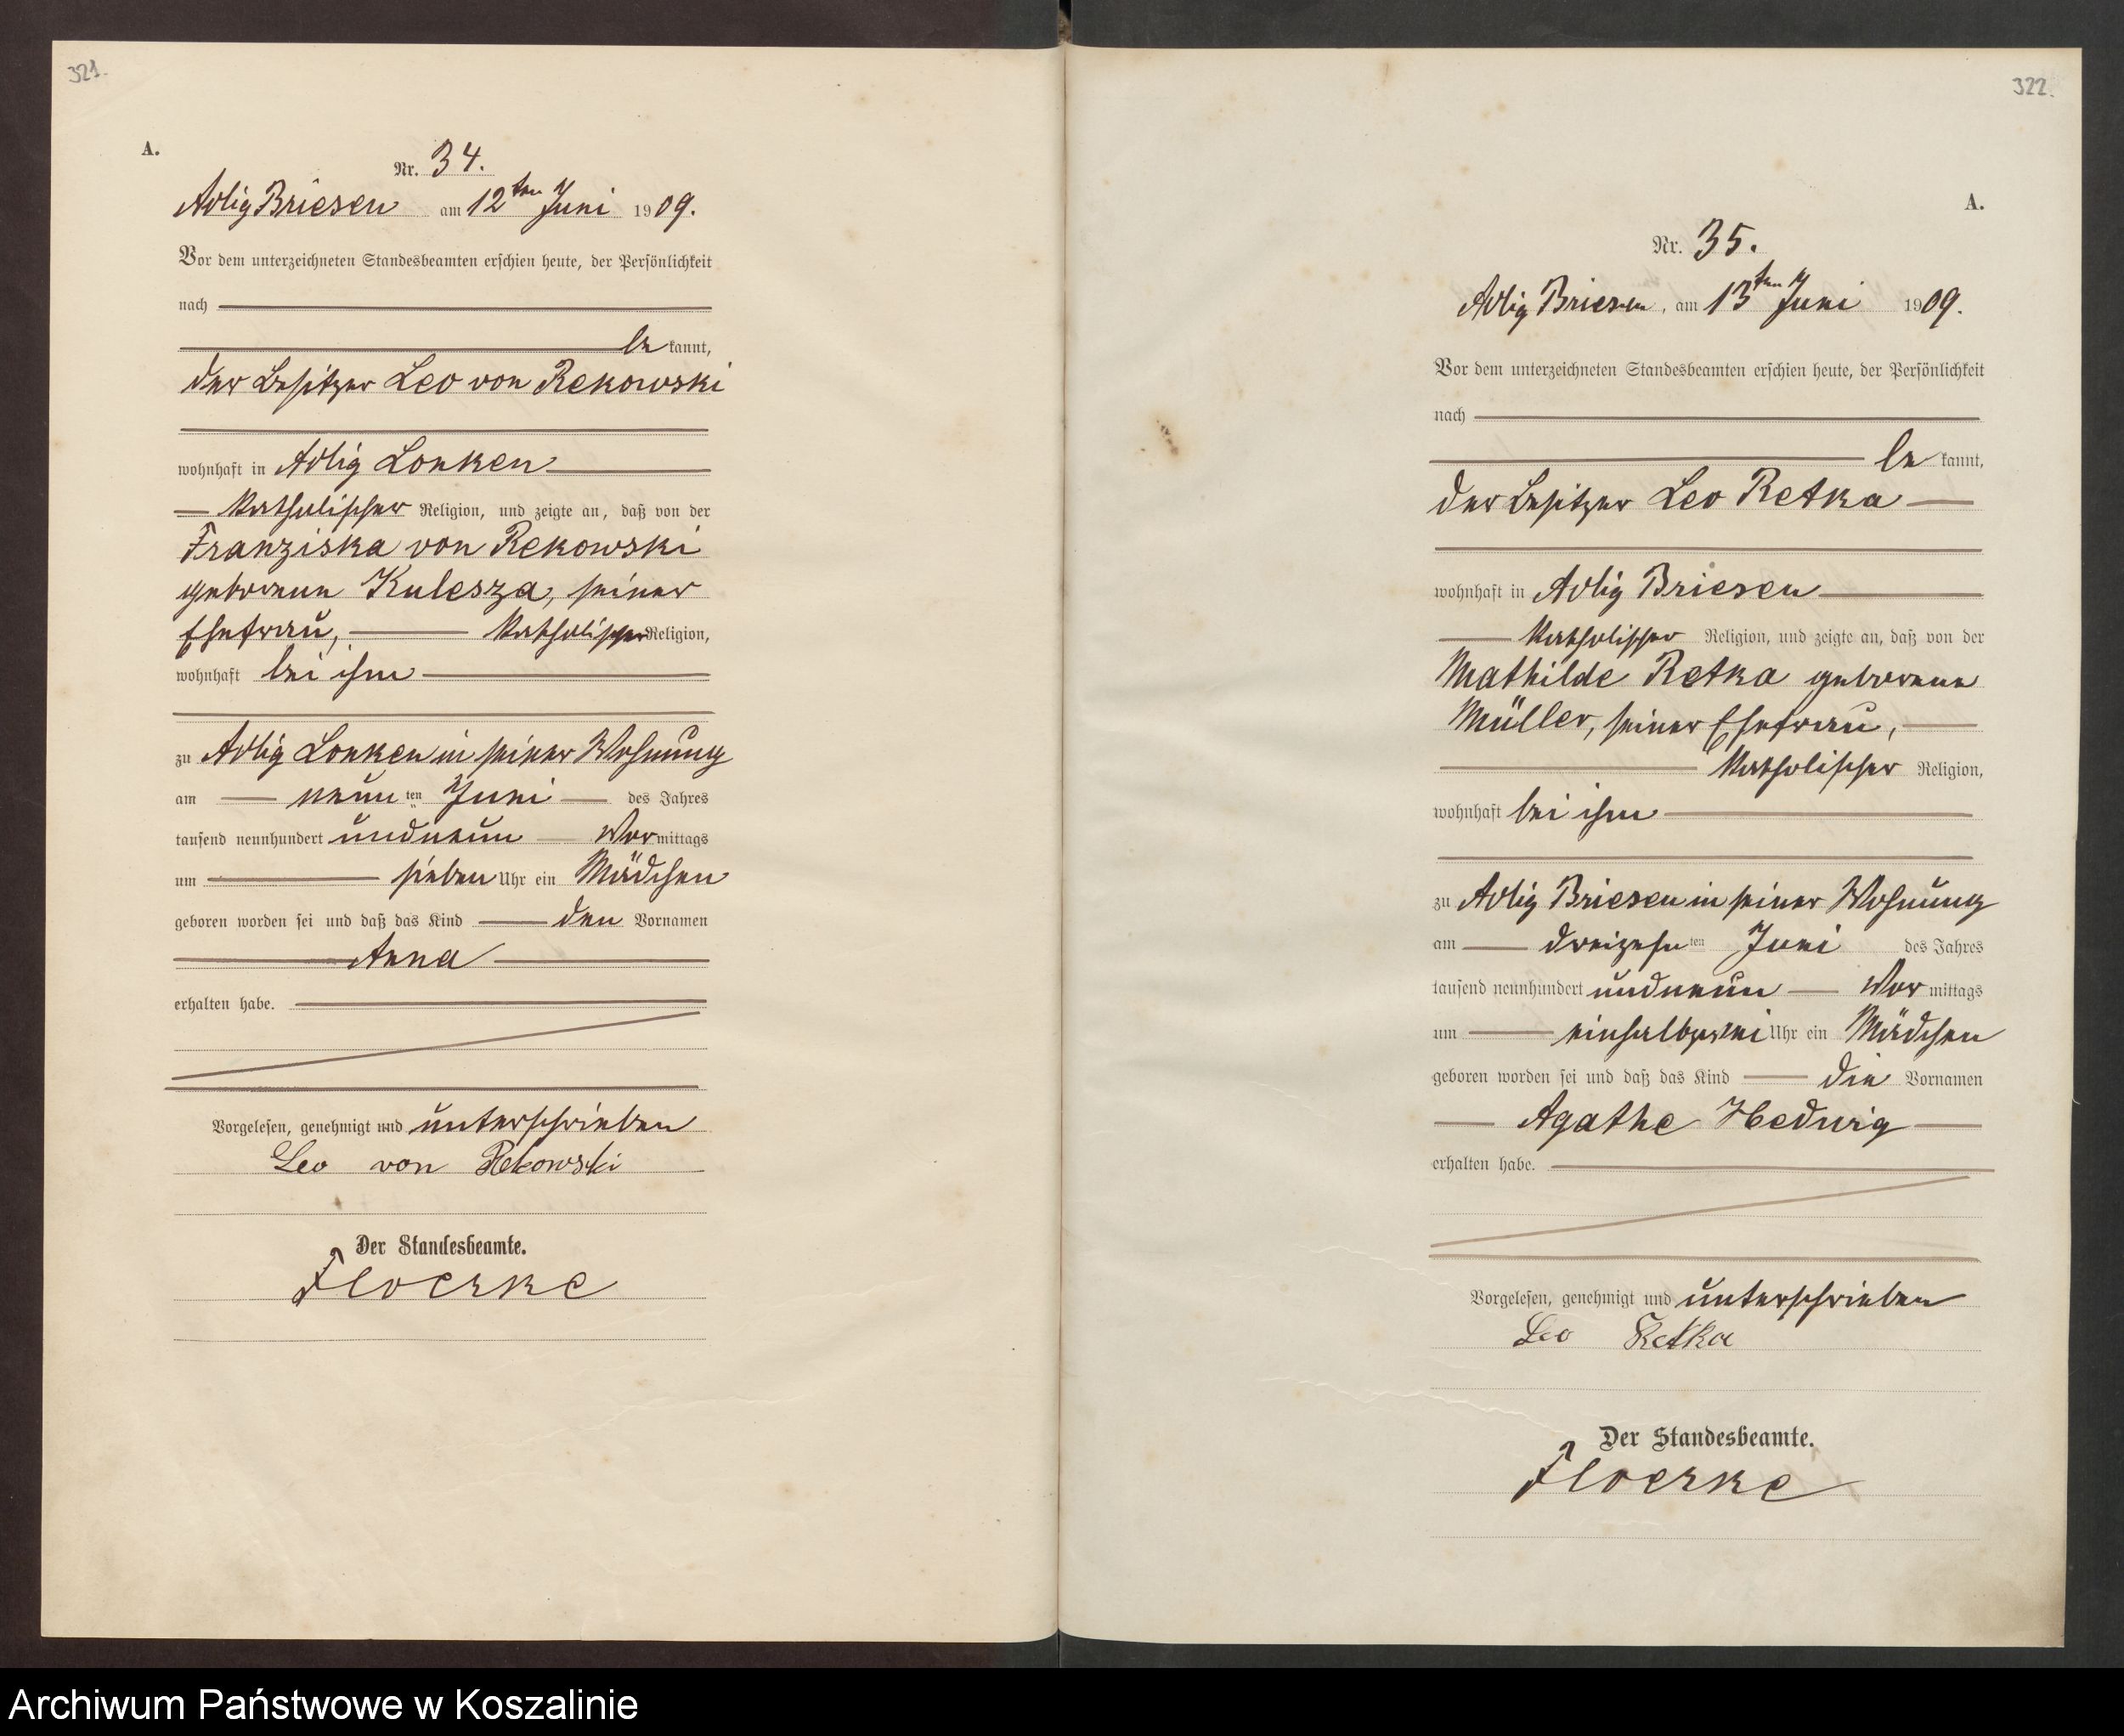 321.
A.
Nr. 34.
Adlig Briesen am 12ten Juni 1909.
Vor dem unterzeichneten Standesbeamten erschien heute, der Persönlichkeit
nach
be kannt,
der Besitzer Leo von Rekowski
wohnhaft in Adlig Lonken
katholischer Religion, und zeigte an, daß von der
Franziska von Rekowski
geborene Kulesza, seiner
Ehefrau, katholischer Religion,
wohnhaft bei ihm
zu Adlig Lonken in seiner Wohnung
am neun ten Juni des Jahres
tausend neunhundert undneun Vormittags
um sieben Uhr ein Mädchen
geboren worden sei und daß das Kind den Vornamen
Anna
erhalten habe.
Vorgelesen, genehmigt und unterschrieben
Leo von Rekowski
Der Standesbeamte.
Floerke
322.
A.
Nr. 35.
Adlig Briesen, am 13ten Juni 1909.
Vor dem unterzeichneten Standesbeamten erschien heute, der Persönlichkeit
nach
be kannt,
der Besitzer Leo Retka
wohnhaft in Adlig Briesen
katholischer Religion, und zeigte an, daß von der
Mathilde Retka geborene
Müller, seiner Ehefrau,
katholischer Religion,
wohnhaft bei ihm
zu Adlig Briesen in seiner Wohnung
am dreizehn ten Juni des Jahres
tausend neunhundert undneun Vor mittags
um einhalbzwei Uhr ein Mädchen
geboren worden sei und daß das Kind die Vornamen
Agathe Hedwig
erhalten habe.
Vorgelesen, genehmigt und unterschrieben
Leo Retka
Der Standesbeamte.
Floerke
Archiwum Państwowe w Koszalinie